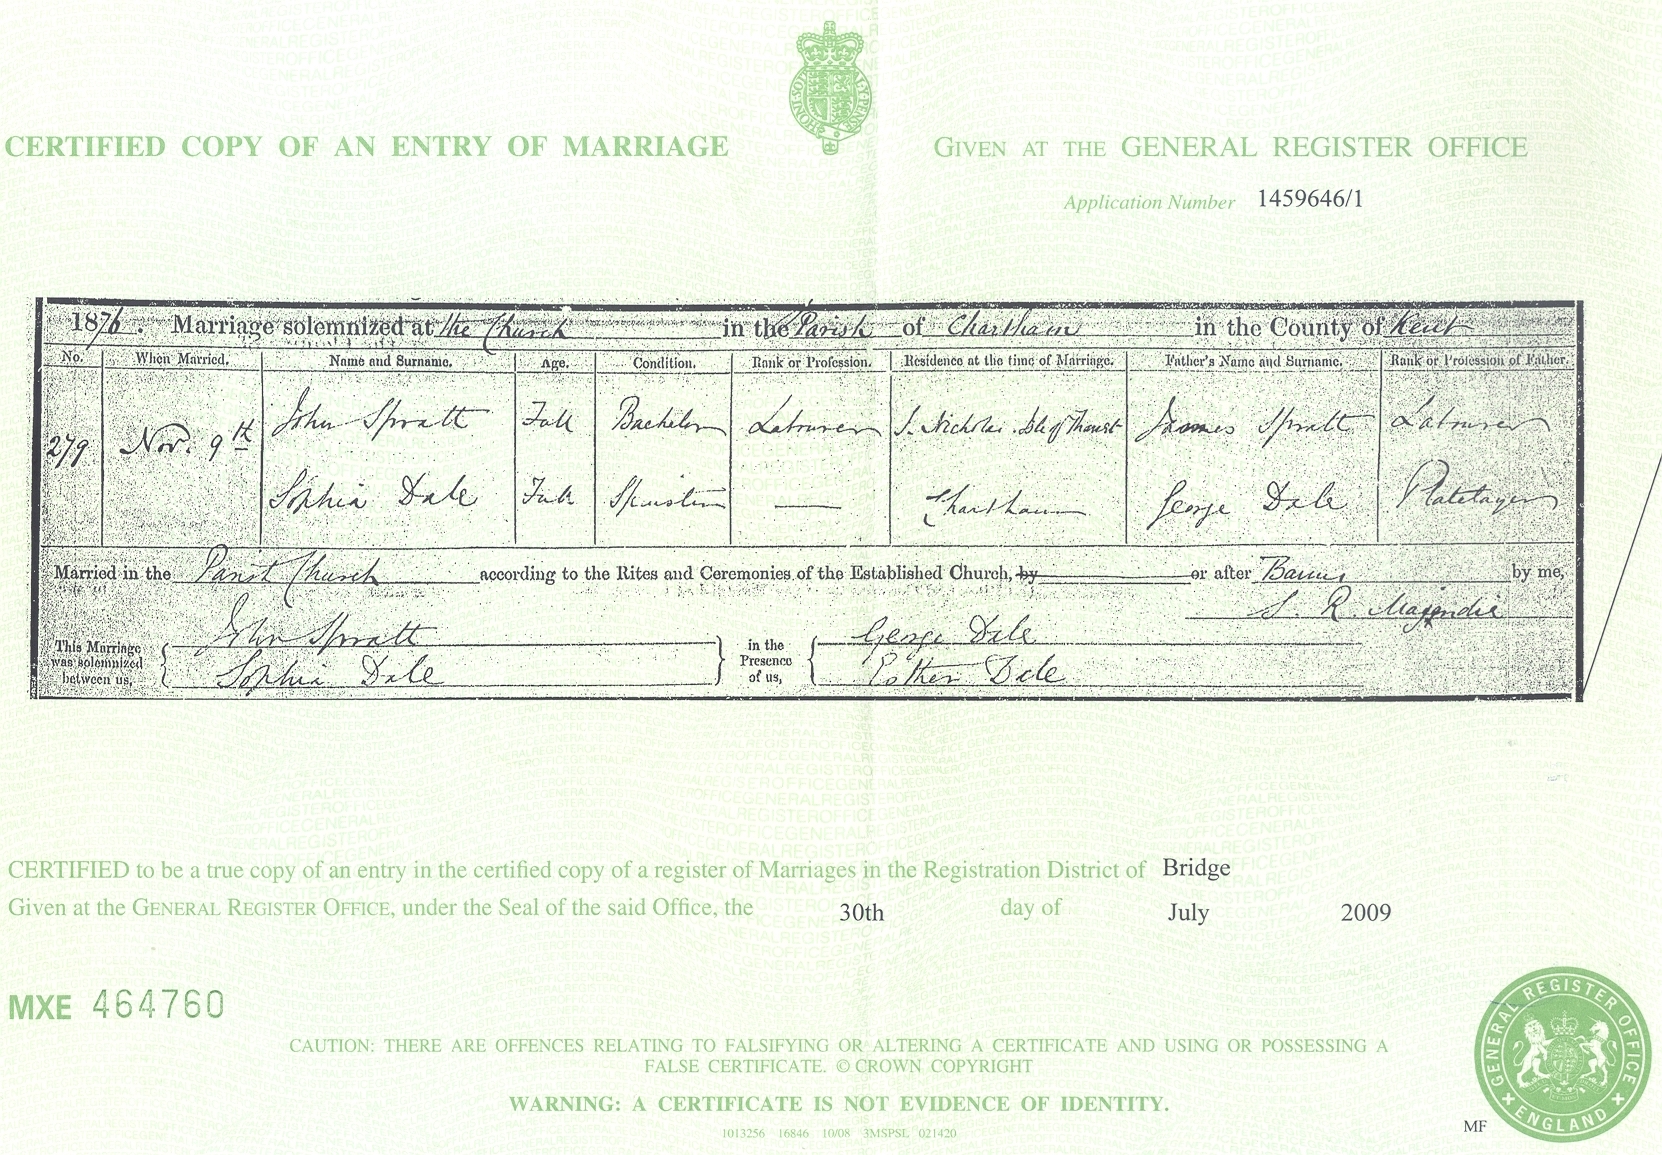 CERTIFIED COPY OF AN ENTRY OF MARRIAGE
GIVEN AT THE GENERAL REGISTER OFFICE
Application Number 1459646/1
1876. Marriage solemnized at the Church in the Parish of Chartham in the County of Kent
No. When Married. Name and Surname. Age. Condition. Rank or Profession. Residence at the time of Marriage. Father's Name and Surname. Rank or Profession of Father.
279 Nov. 9th John Spratt Full Bachelor Labourer S. Nicholas Isle of Thanet James Spratt Labourer
Sophia Dale Full Spinster — Chartham George Dale Platelayer
Married in the Parish Church according to the Rites and Ceremonies of the Established Church, by or after Banns by me,
S. R. Majendie
This Marriage was solemnized between us, John Spratt Sophia Dale in the Presence of us, George Dale Esther Dale
CERTIFIED to be a true copy of an entry in the certified copy of a register of Marriages in the Registration District of Bridge
Given at the GENERAL REGISTER OFFICE, under the Seal of the said Office, the 30th day of July 2009
MXE 464760
CAUTION: THERE ARE OFFENCES RELATING TO FALSIFYING OR ALTERING A CERTIFICATE AND USING OR POSSESSING A
FALSE CERTIFICATE. © CROWN COPYRIGHT
WARNING: A CERTIFICATE IS NOT EVIDENCE OF IDENTITY.
1013256 16846 10/08 3MSPSL 021420
MF
GENERAL REGISTER OFFICE
ENGLAND